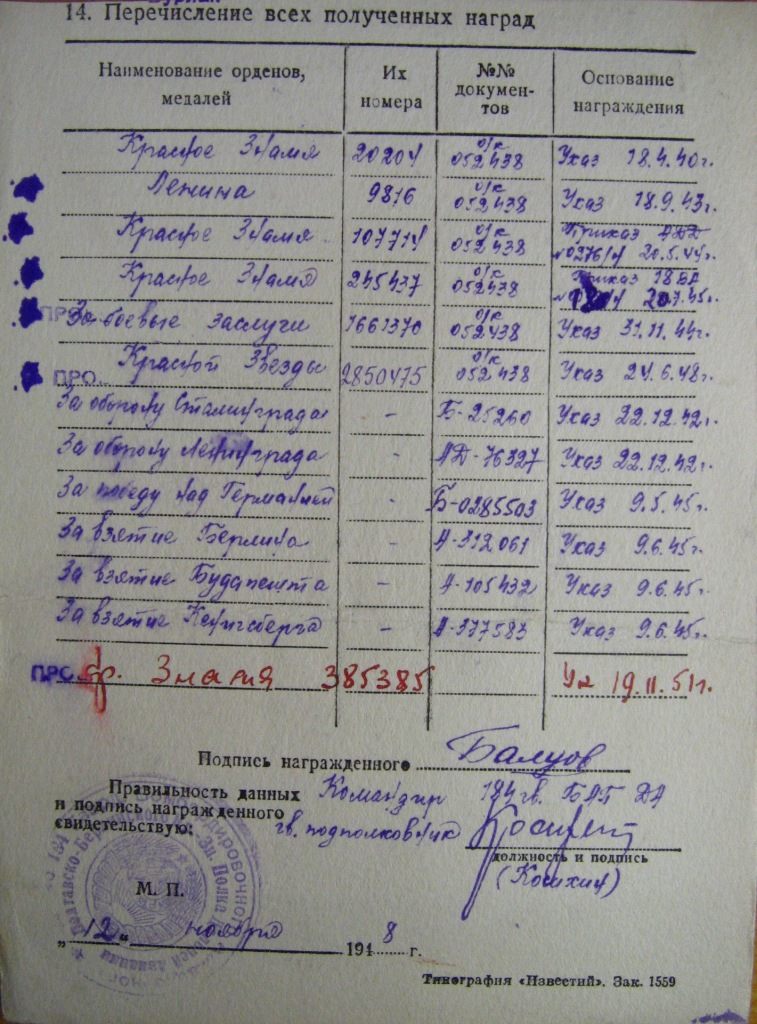 14. Перечисление всех полученных наград
Наименование орденов, медалей
Их номера
№№ документов
Основание награждения
Красное Знамя 20204 о/к 052438 Указ 18.4.40г.
Ленина 9816 о/к 052438 Указ 18.9.43г.
Красное Знамя 107714 о/к 052438 Приказ АДД №0276/Н 20.5.44г.
Красное Знамя 245437 о/к 052438 Приказ 18ВА 20.7.45г.
За боевые заслуги 1661370 о/к 052438 Указ 31.11.44г.
ПРО..
Красной Звезды 2850475 о/к 052438 Указ 24.6.48г.
ПРО..
За оборону Сталинграда - Б-25260 Указ 22.12.42г.
За оборону Ленинграда - АД-76327 Указ 22.12.42г.
За победу над Германией - Б-0285503 Указ 9.5.45г.
За взятие Берлина - А-312061 Указ 9.6.45г.
За взятие Будапешта - А-105432 Указ 9.6.45г.
За взятие Кенигсберга - А-377583 Указ 9.6.45г.
ПРО. Кр. Знамя 385385 Ук 19.11.51г.
Подпись награжденного Балуов
Правильность данных Командир 184 гв. БАП ДА
и подпись награжденного
свидетельствую: гв. подполковник
должность и подпись
(Косихин)
М. П.
„12“ ноября 1948 г.
Типография «Известий». Зак. 1559